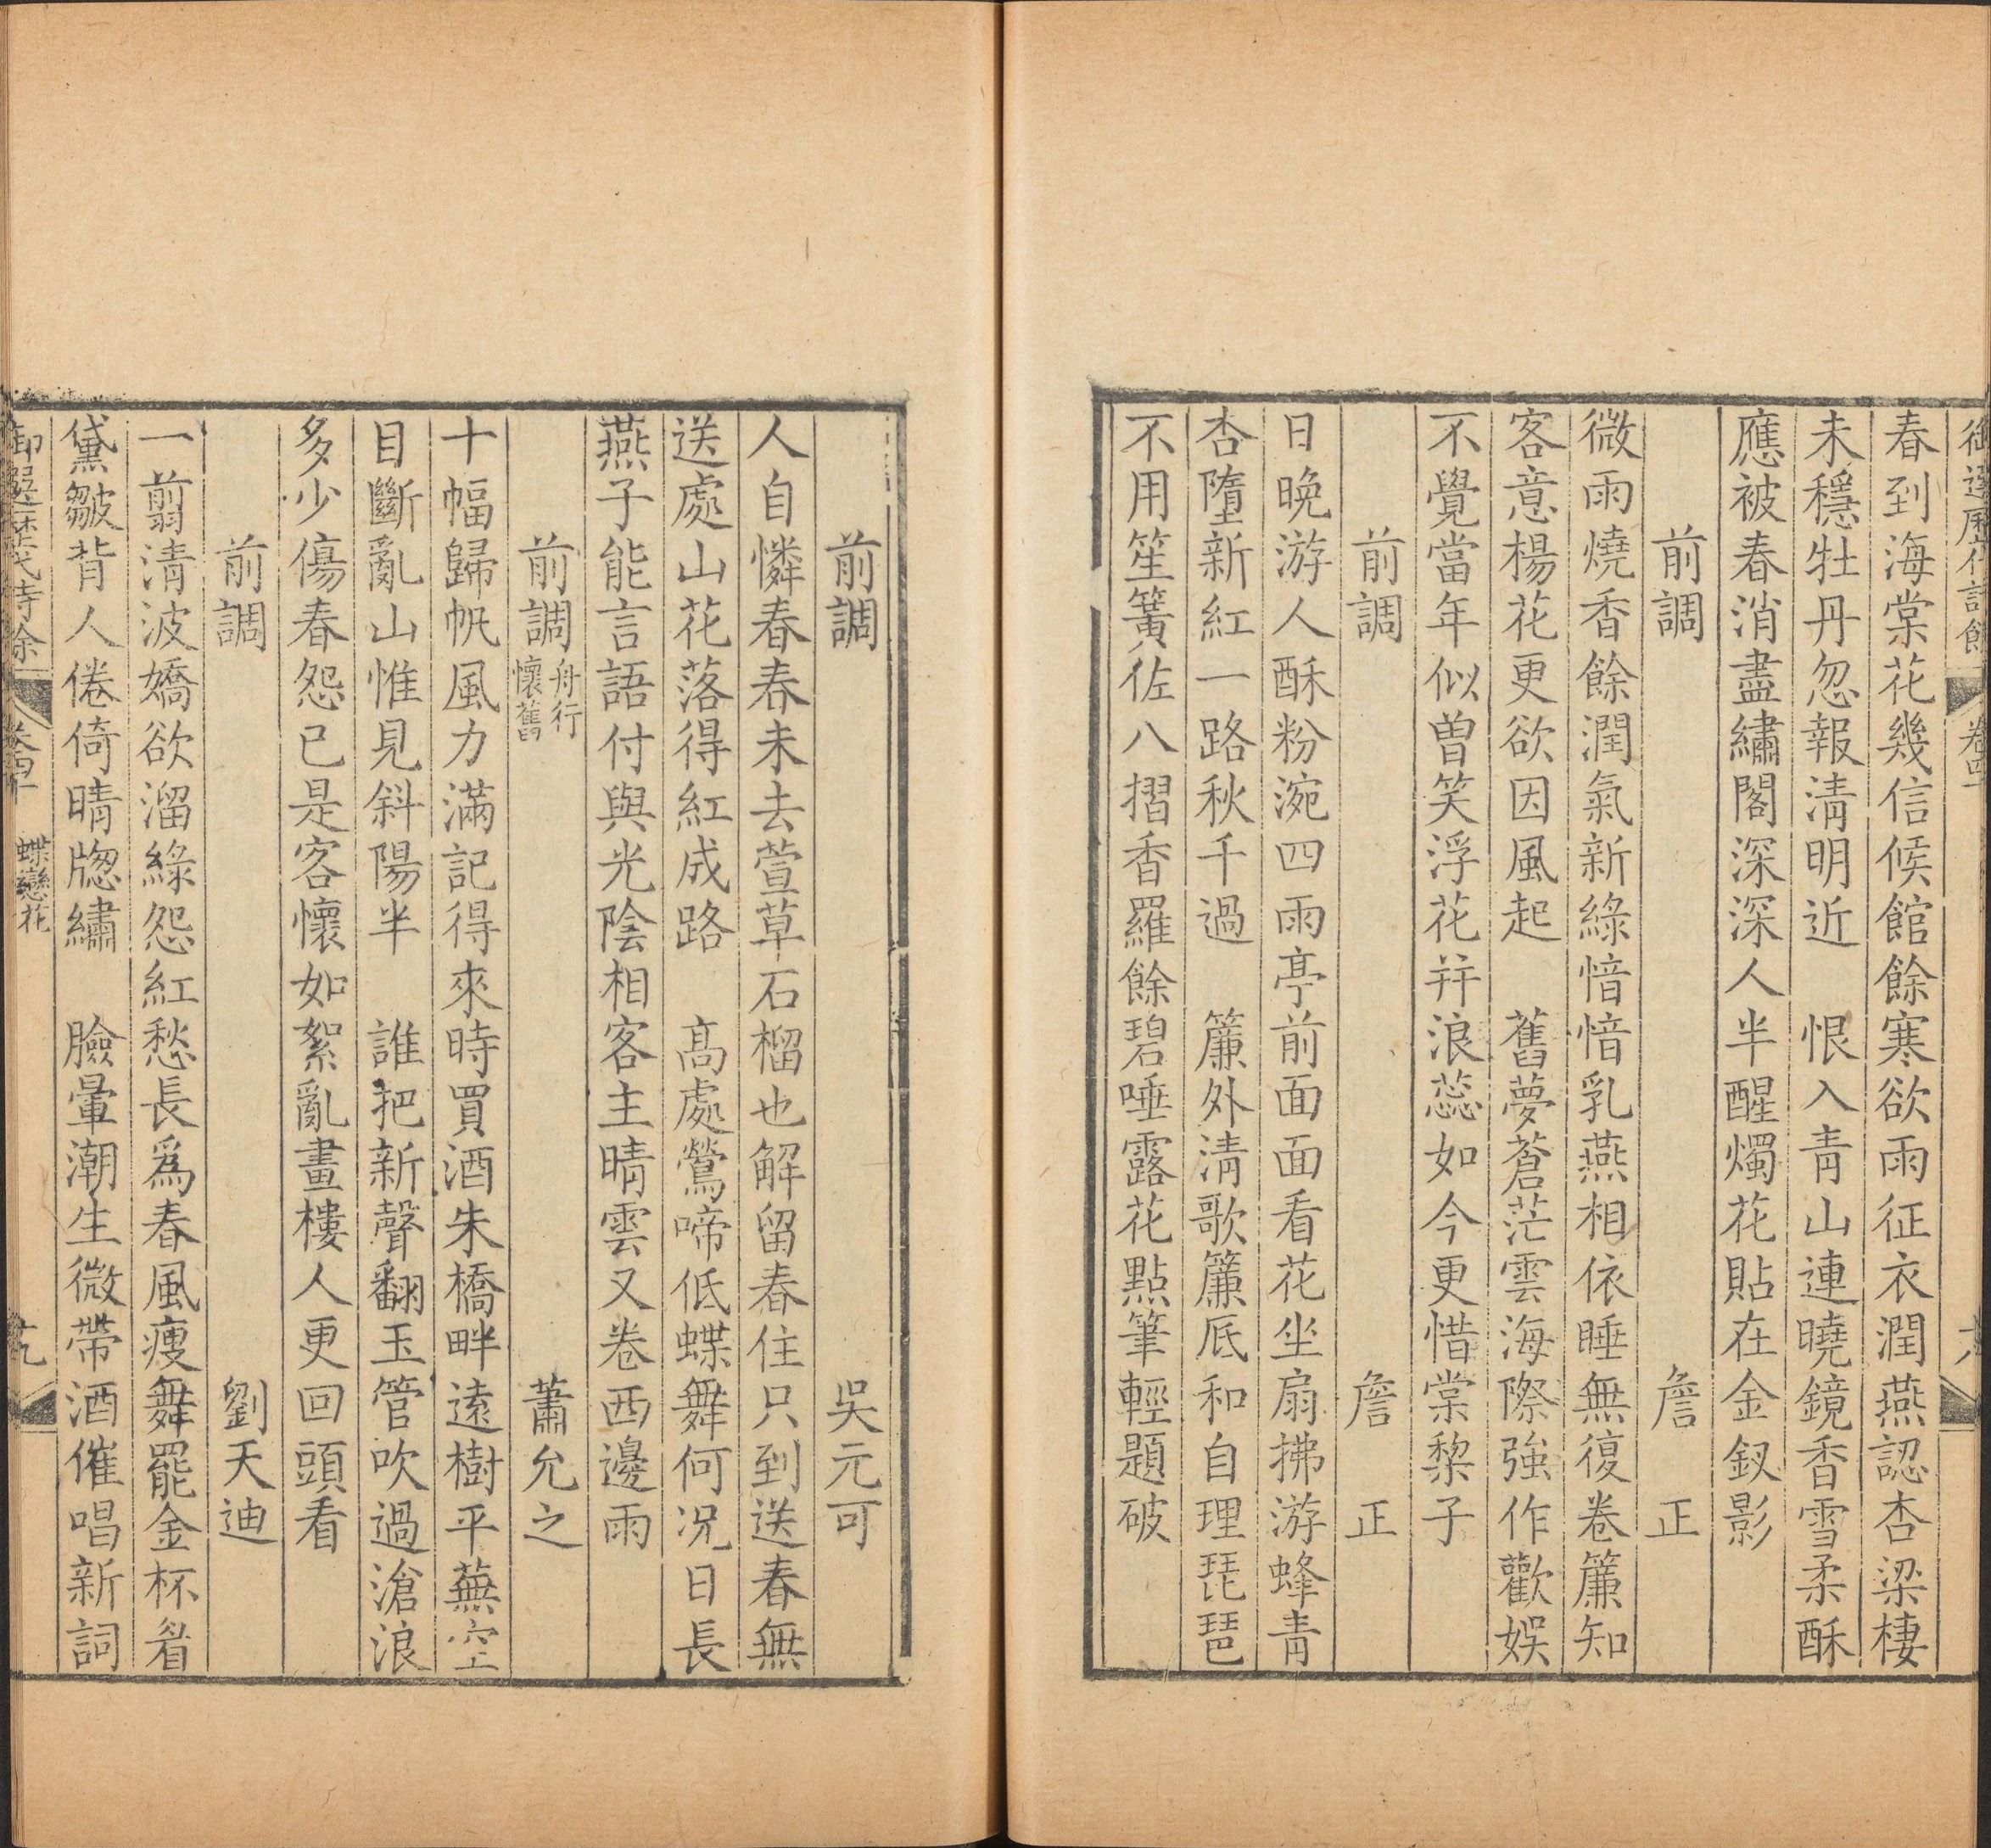 御選歷代詩餘 卷四十 十八
春到海棠花幾信候館餘寒欲雨征衣潤燕認杏梁棲
未穩牡丹忽報清明近　恨入青山連曉鏡香雪柔酥
應被春消盡繡閣深深人半醒燭花貼在金釵影
前調　詹　正
微雨燒香餘潤氣新綠愔愔乳燕相依睡無復卷簾知
客意楊花更欲因風起　舊夢蒼茫雲海際強作歡娛
不覺當年似曾笑浮花并浪蕊如今更惜棠棃子
前調　詹　正
日晚游人酥粉涴四雨亭前面面看花坐扇拂游蜂青
杏墮新紅一路秋千過　簾外清歌簾底和自理琵琶
不用笙簧佐八摺香羅餘碧唾露花點筆輕題破
前調　吳元可
人自憐春春未去萱草石榴也解留春住只到送春無
送處山花落得紅成路　高處鶯啼低蝶舞何况日長
燕子能言語付與光陰相客主晴雲又卷西邊雨
前調 舟行懷舊　蕭允之
十幅歸帆風力滿記得來時買酒朱橋畔遠樹平蕪空
目斷亂山惟見斜陽半　誰把新聲翻玉管吹過滄浪
多少傷春怨已是客懷如絮亂畫樓人更回頭看
前調　劉天迪
一翦清波嬌欲溜綠怨紅愁長爲春風瘦舞罷金杯眉
黛皺背人倦倚晴牕繡　臉暈潮生微帶酒催唱新詞
御選歷代詩餘 卷四十 蝶戀花 十九